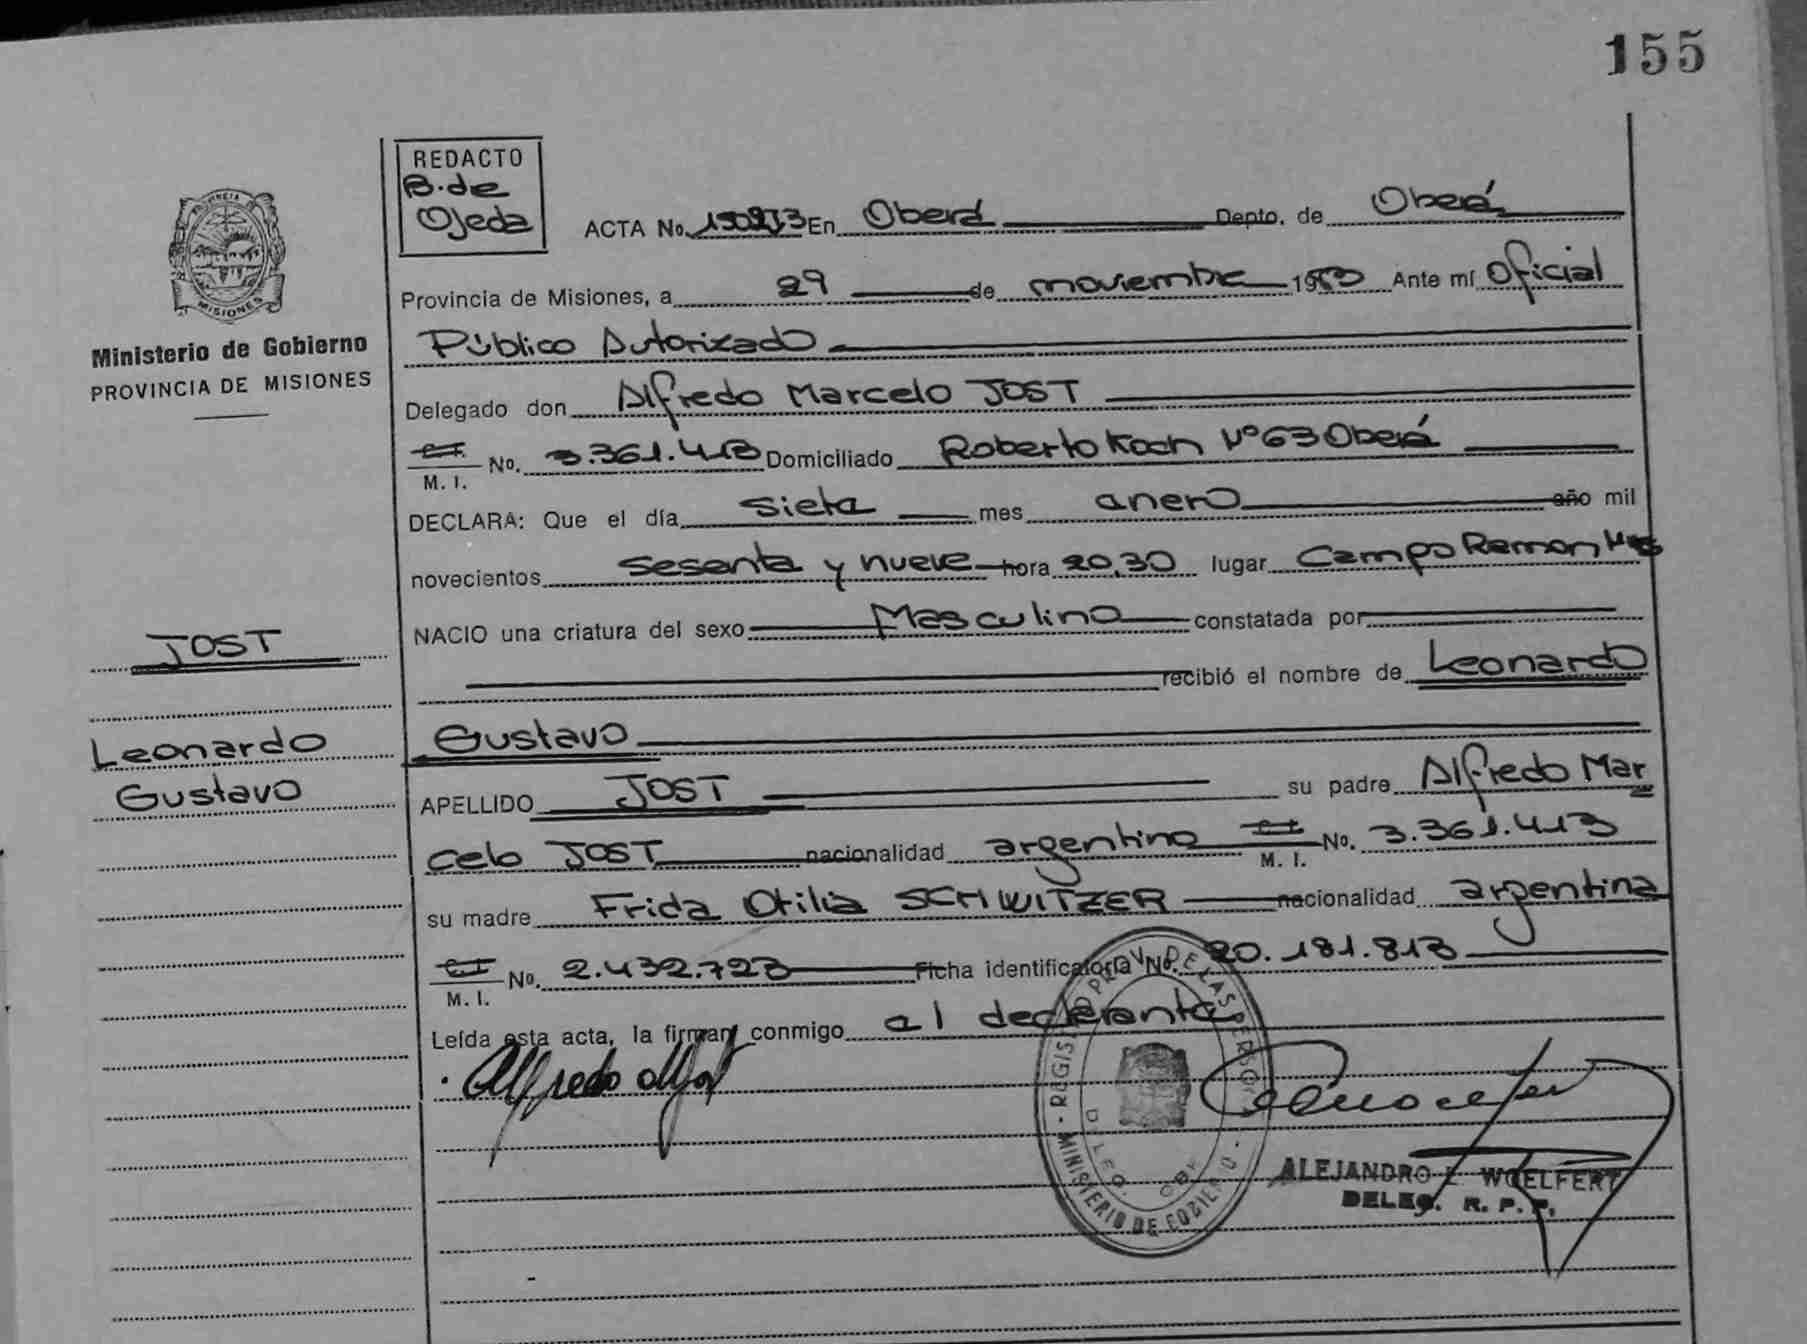 155
REDACTO
B. de
Ojeda
ACTA No. En Oberá Depto. de Oberá
PROVINCIA DE
MISIONES
Ministerio de Gobierno
PROVINCIA DE MISIONES
Provincia de Misiones, a 29 de noviembre 1983 Ante mí Oficial
Público Autorizado
Delegado don Alfredo Marcelo JOST
C.I.
M. I. No. 3.361.413 Domiciliado Roberto Koch Nº 63 Oberá
DECLARA: Que el día siete mes enero año mil
novecientos sesenta y nueve hora 20,30 lugar Campo Ramon Mes
NACIO una criatura del sexo Masculino constatada por
recibió el nombre de Leonardo
Gustavo
JOST
Leonardo
Gustavo
APELLIDO JOST su padre Alfredo Mar
celo JOST nacionalidad argentino C.I.
M. I. No. 3.361.413
su madre Frida Otilia SCHWITZER nacionalidad argentina
C.I.
M. I. No. 2.432.723 Ficha identificatoria No. 20.181.813
Leída esta acta, la firman conmigo el declarante
REGISTRO PROV. DE LAS PERSONAS
MINISTERIO DE GOBIERNO
DELEG. OBERÁ
ALEJANDRO WOELFERT
DELEG. R. P. P.